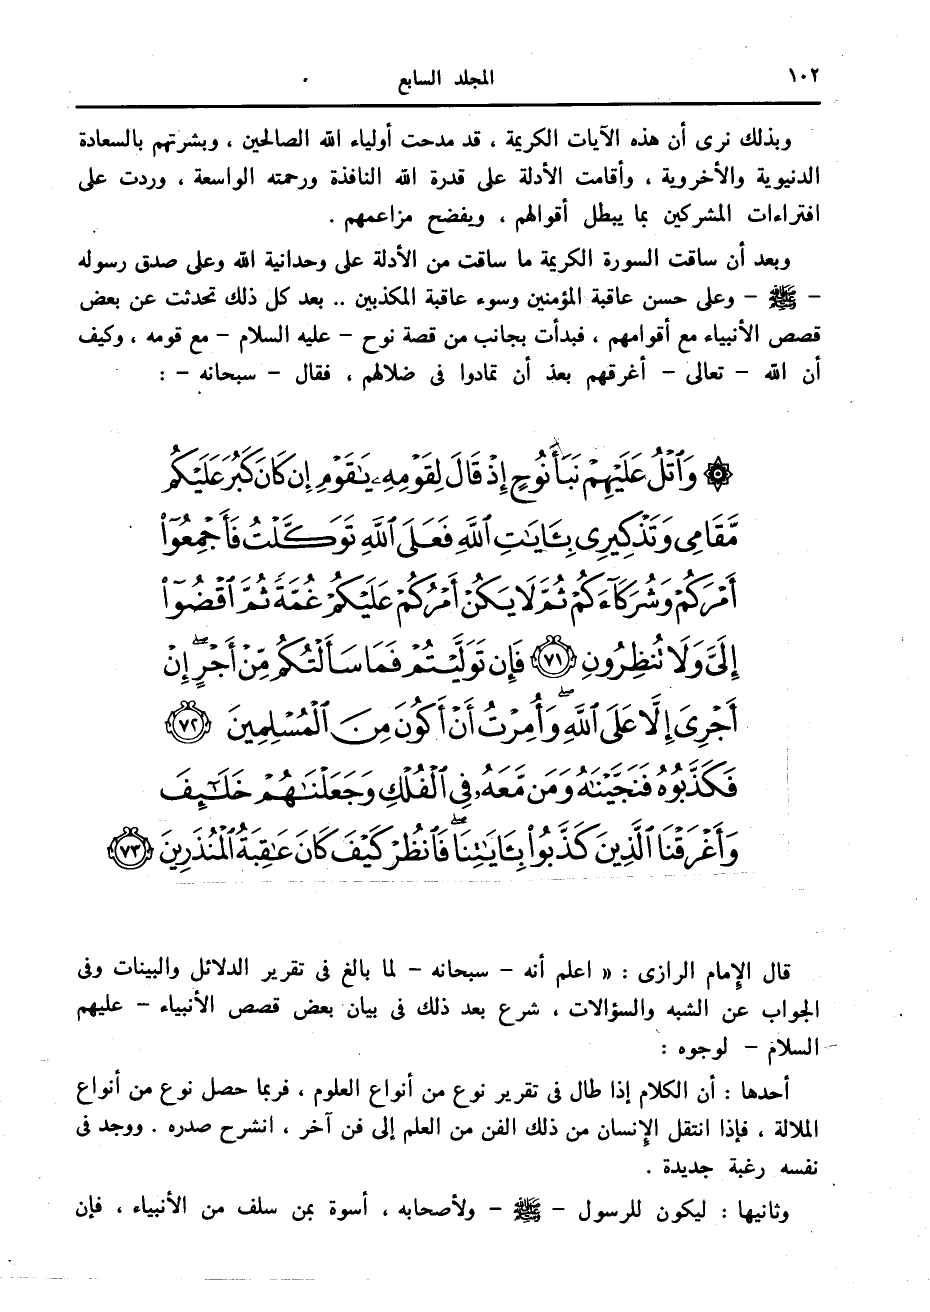 ١٠٢
المجلد السابع
وبذلك نرى أن هذه الآيات الكريمة ، قد مدحت أولياء الله الصالحين ، وبشرتهم بالسعادة
الدنيوية والأخروية ، وأقامت الأدلة على قدرة الله النافذة ورحمته الواسعة ، وردت على
افتراءات المشركين بما يبطل أقوالهم ، ويفضح مزاعمهم .
وبعد أن ساقت السورة الكريمة ما ساقت من الأدلة على وحدانية الله وعلى صدق رسوله
– ﷺ – وعلى حسن عاقبة المؤمنين وسوء عاقبة المكذبين .. بعد كل ذلك تحدثت عن بعض
قصص الأنبياء مع أقوامهم ، فبدأت بجانب من قصة نوح – عليه السلام – مع قومه ، وكيف
أن الله – تعالى – أغرقهم بعد أن تمادوا فى ضلالهم ، فقال – سبحانه – :
۞ وَٱتْلُ عَلَيْهِمْ نَبَأَ نُوحٍ إِذْ قَالَ لِقَوْمِهِۦ يَٰقَوْمِ إِن كَانَ كَبُرَ عَلَيْكُم
مَّقَامِى وَتَذْكِيرِى بِـَٔايَٰتِ ٱللَّهِ فَعَلَى ٱللَّهِ تَوَكَّلْتُ فَأَجْمِعُوٓا۟
أَمْرَكُمْ وَشُرَكَآءَكُمْ ثُمَّ لَا يَكُنْ أَمْرُكُمْ عَلَيْكُمْ غُمَّةً ثُمَّ ٱقْضُوٓا۟
إِلَىَّ وَلَا تُنظِرُونِ ٧١ فَإِن تَوَلَّيْتُمْ فَمَا سَأَلْتُكُم مِّنْ أَجْرٍ ۖ إِنْ
أَجْرِىَ إِلَّا عَلَى ٱللَّهِ ۖ وَأُمِرْتُ أَنْ أَكُونَ مِنَ ٱلْمُسْلِمِينَ ٧٢
فَكَذَّبُوهُ فَنَجَّيْنَٰهُ وَمَن مَّعَهُۥ فِى ٱلْفُلْكِ وَجَعَلْنَٰهُمْ خَلَٰٓئِفَ
وَأَغْرَقْنَا ٱلَّذِينَ كَذَّبُوا۟ بِـَٔايَٰتِنَا ۖ فَٱنظُرْ كَيْفَ كَانَ عَٰقِبَةُ ٱلْمُنذَرِينَ ٧٣
قال الإمام الرازى : « اعلم أنه – سبحانه – لما بالغ فى تقرير الدلائل والبينات وفى
الجواب عن الشبه والسؤالات ، شرع بعد ذلك فى بيان بعض قصص الأنبياء – عليهم
السلام – لوجوه :
أحدها : أن الكلام إذا طال فى تقرير نوع من أنواع العلوم ، فربما حصل نوع من أنواع
الملالة ، فإذا انتقل الإنسان من ذلك الفن من العلم إلى فن آخر ، انشرح صدره . ووجد فى
نفسه رغبة جديدة .
وثانيها : ليكون للرسول – ﷺ – ولأصحابه ، أسوة بمن سلف من الأنبياء ، فإن